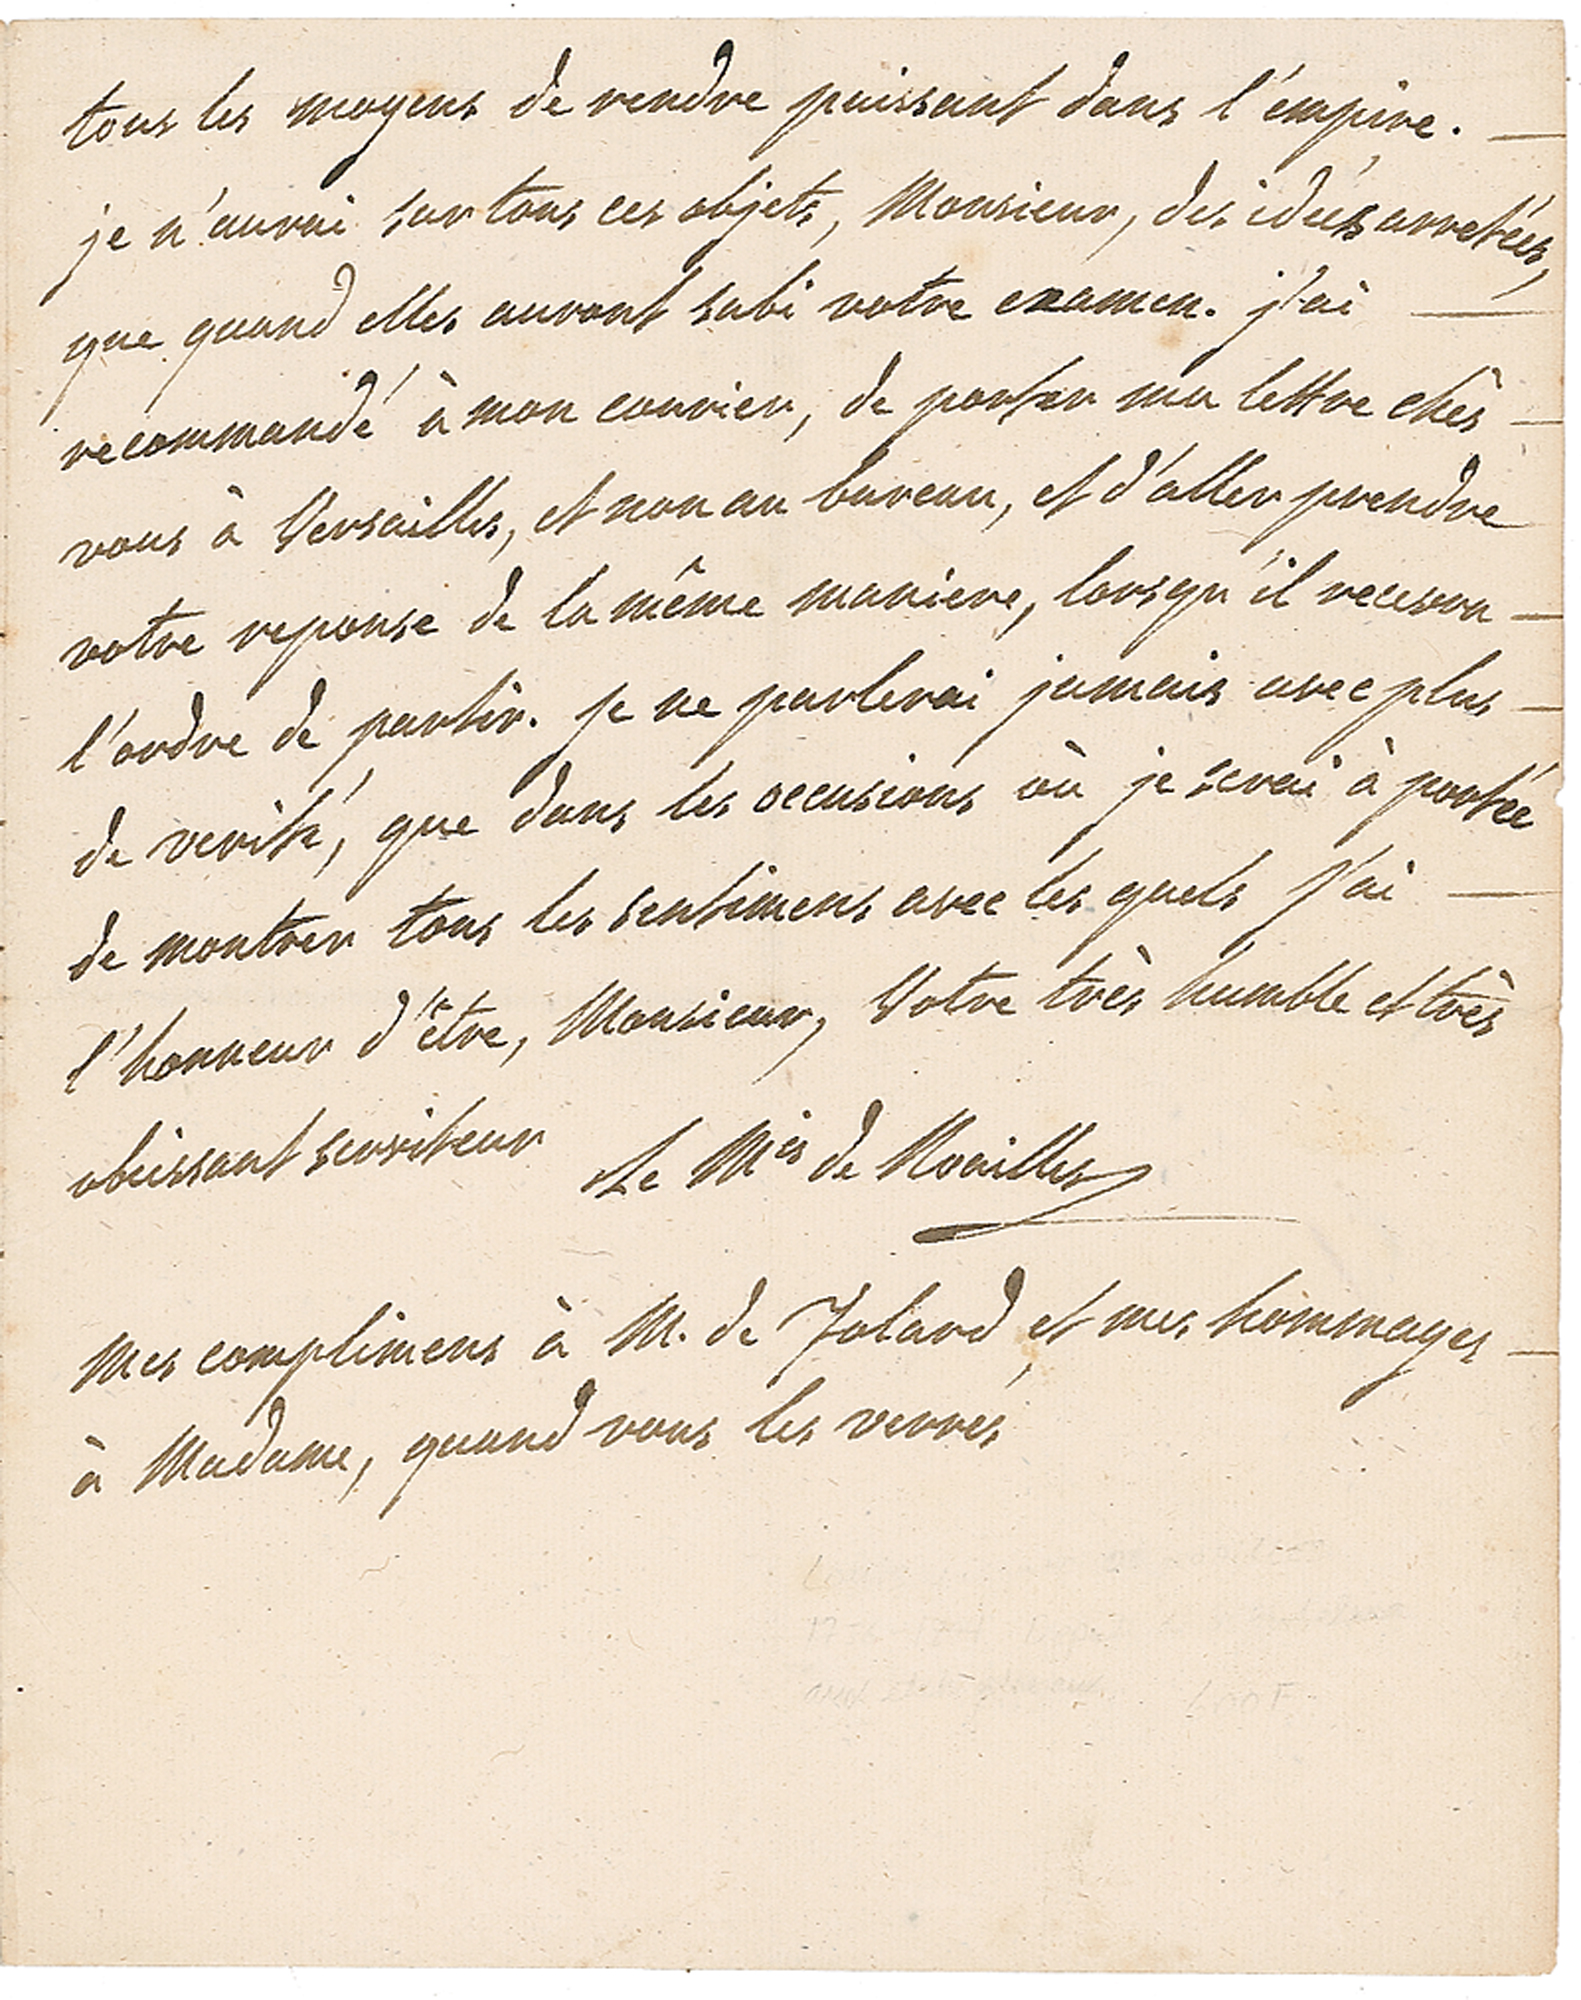 tous les moyens de rendre puissant dans l'émpire. —
je n'aurai sur tous ces objets, Monsieur, des idées arretées,
que quand elles auront subi votre examen. j'ai —
recommandé à mon courier, de porter ma lettre chès —
vous à Versailles, et non au bureau, et d'aller prendre
votre reponse de la même maniere, lorsqu'il recevra —
l'ordre de partir. je ne parlerai jamais avec plus —
de verité, que dans les occasions où je serai à portée
de montrer tous les sentimens avec les quels j'ai —
l'honneur d'être, Monsieur, Votre très humble et très
obeissant serviteur Le Mis de Noailles
Mes complimens à M. de Folard et mes hommages —
à Madame, quand vous les verrés